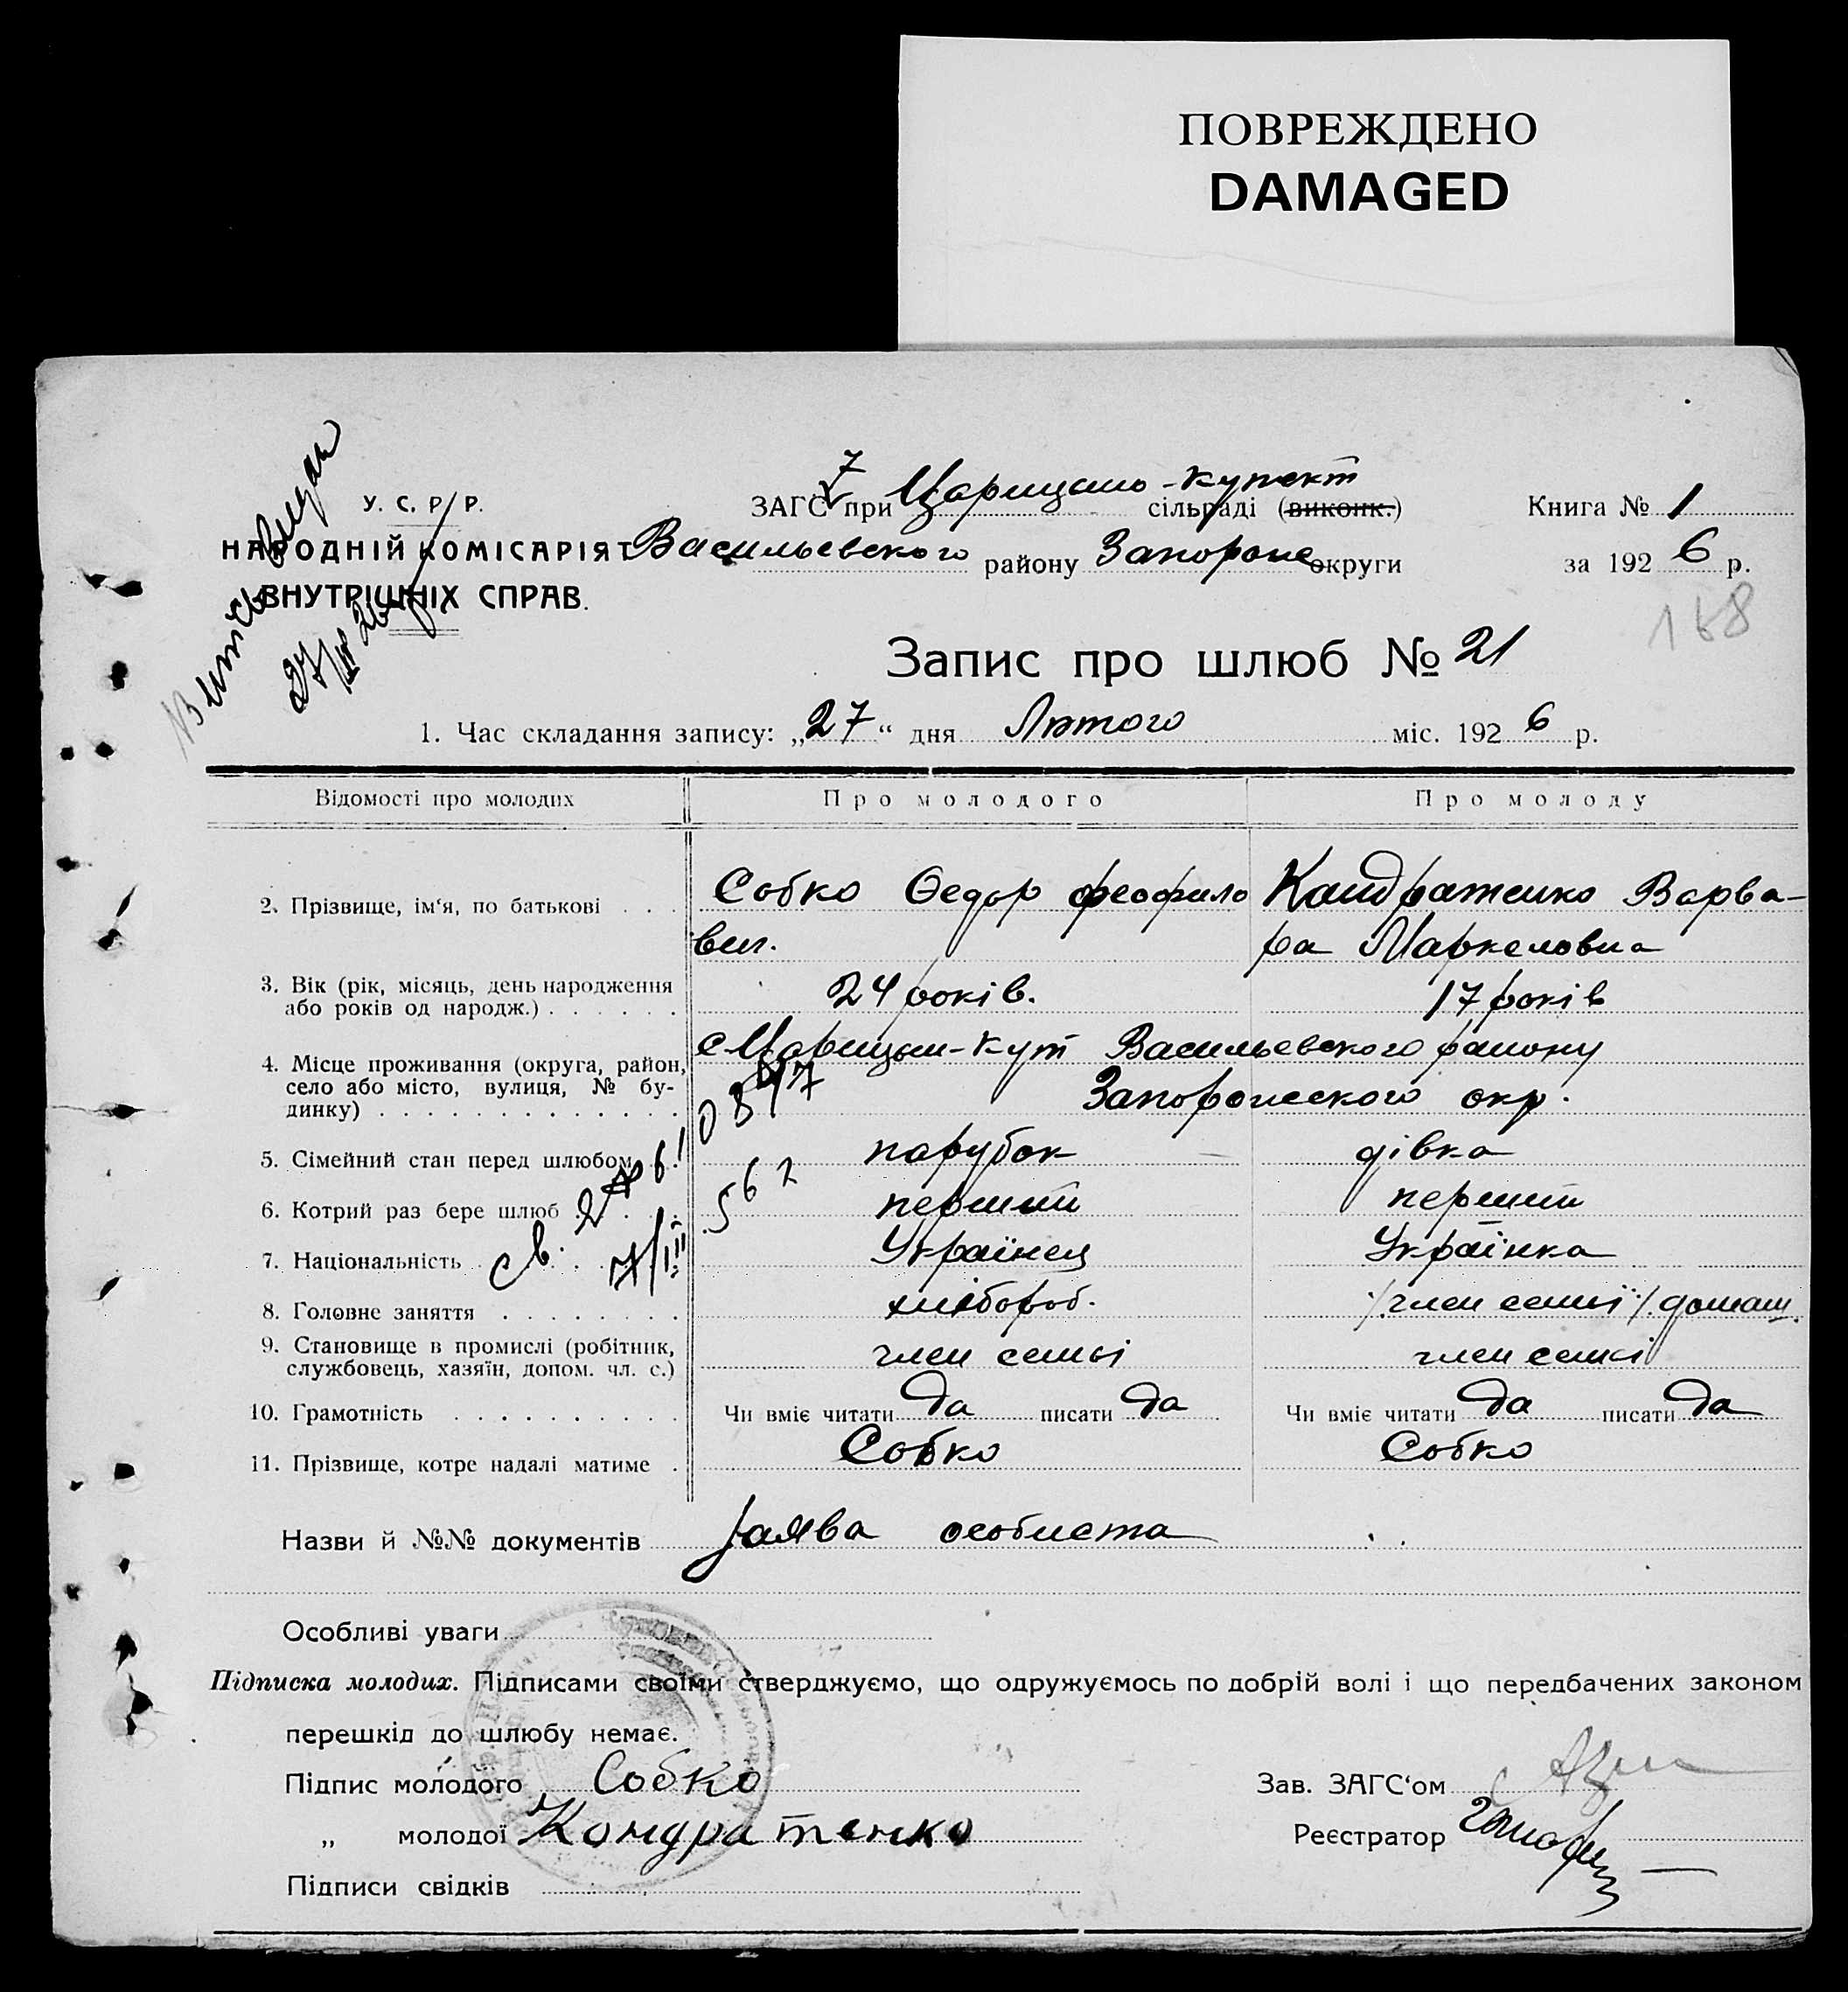 ПОВРЕЖДЕНО
DAMAGED
У. С. Р. Р.
НАРОДНІЙ КОМІСАРІЯТ
ВНУТРІШНІХ СПРАВ.
Витяг видан
27/III 26
ЗАГС при Царицыно-Кутскт сільраді (виконк.)
Книга № 1
Васильевского району Запорож округи
за 1926 р.
168
Запис про шлюб № 21
1. Час складання запису: „27“ дня Лютого міс. 1926 р.
Відомості про молодих Про молодого Про молоду
2. Прізвище, ім‘я, по батькові . . . Собко Федор Феофило Кондратенко Варва-
вич. ра Маркеловна
3. Вік (рік, місяць, день народження
або років од народж.) . . . . . . 24 років. 17 років
4. Місце проживання (округа, район, с Царицын-Кут Васильевского району
село або місто, вулиця, № бу- Запорожского окр.
динку) . . . . . . . . . . . . .
5. Сімейний стан перед шлюбом . . парубок дівка
562
6. Котрий раз бере шлюб . . . . . перший перший
7. Національність . . . . . Українец Українка
св.
7/III
8. Головне заняття . . . . . . . . хлібороб. /член семьї/ домаш.
9. Становище в промислі (робітник,
службовець, хазяїн, допом. чл. с.) член семьі член семьі
10. Грамотність . . . . . . . . . . Чи вміє читати да писати да Чи вміє читати да писати да
11. Прізвище, котре надалі матиме . Собко Собко
Назви й №№ документів Заява особиста
Особливі уваги
Підписка молодих. Підписами своїми стверджуємо, що одружуємось по добрій волі і що передбачених законом
перешкід до шлюбу немає.
Підпис молодого Собко
Зав. ЗАГС‘ом
„ молодої Кондратенко
Реєстратор
Підписи свідків